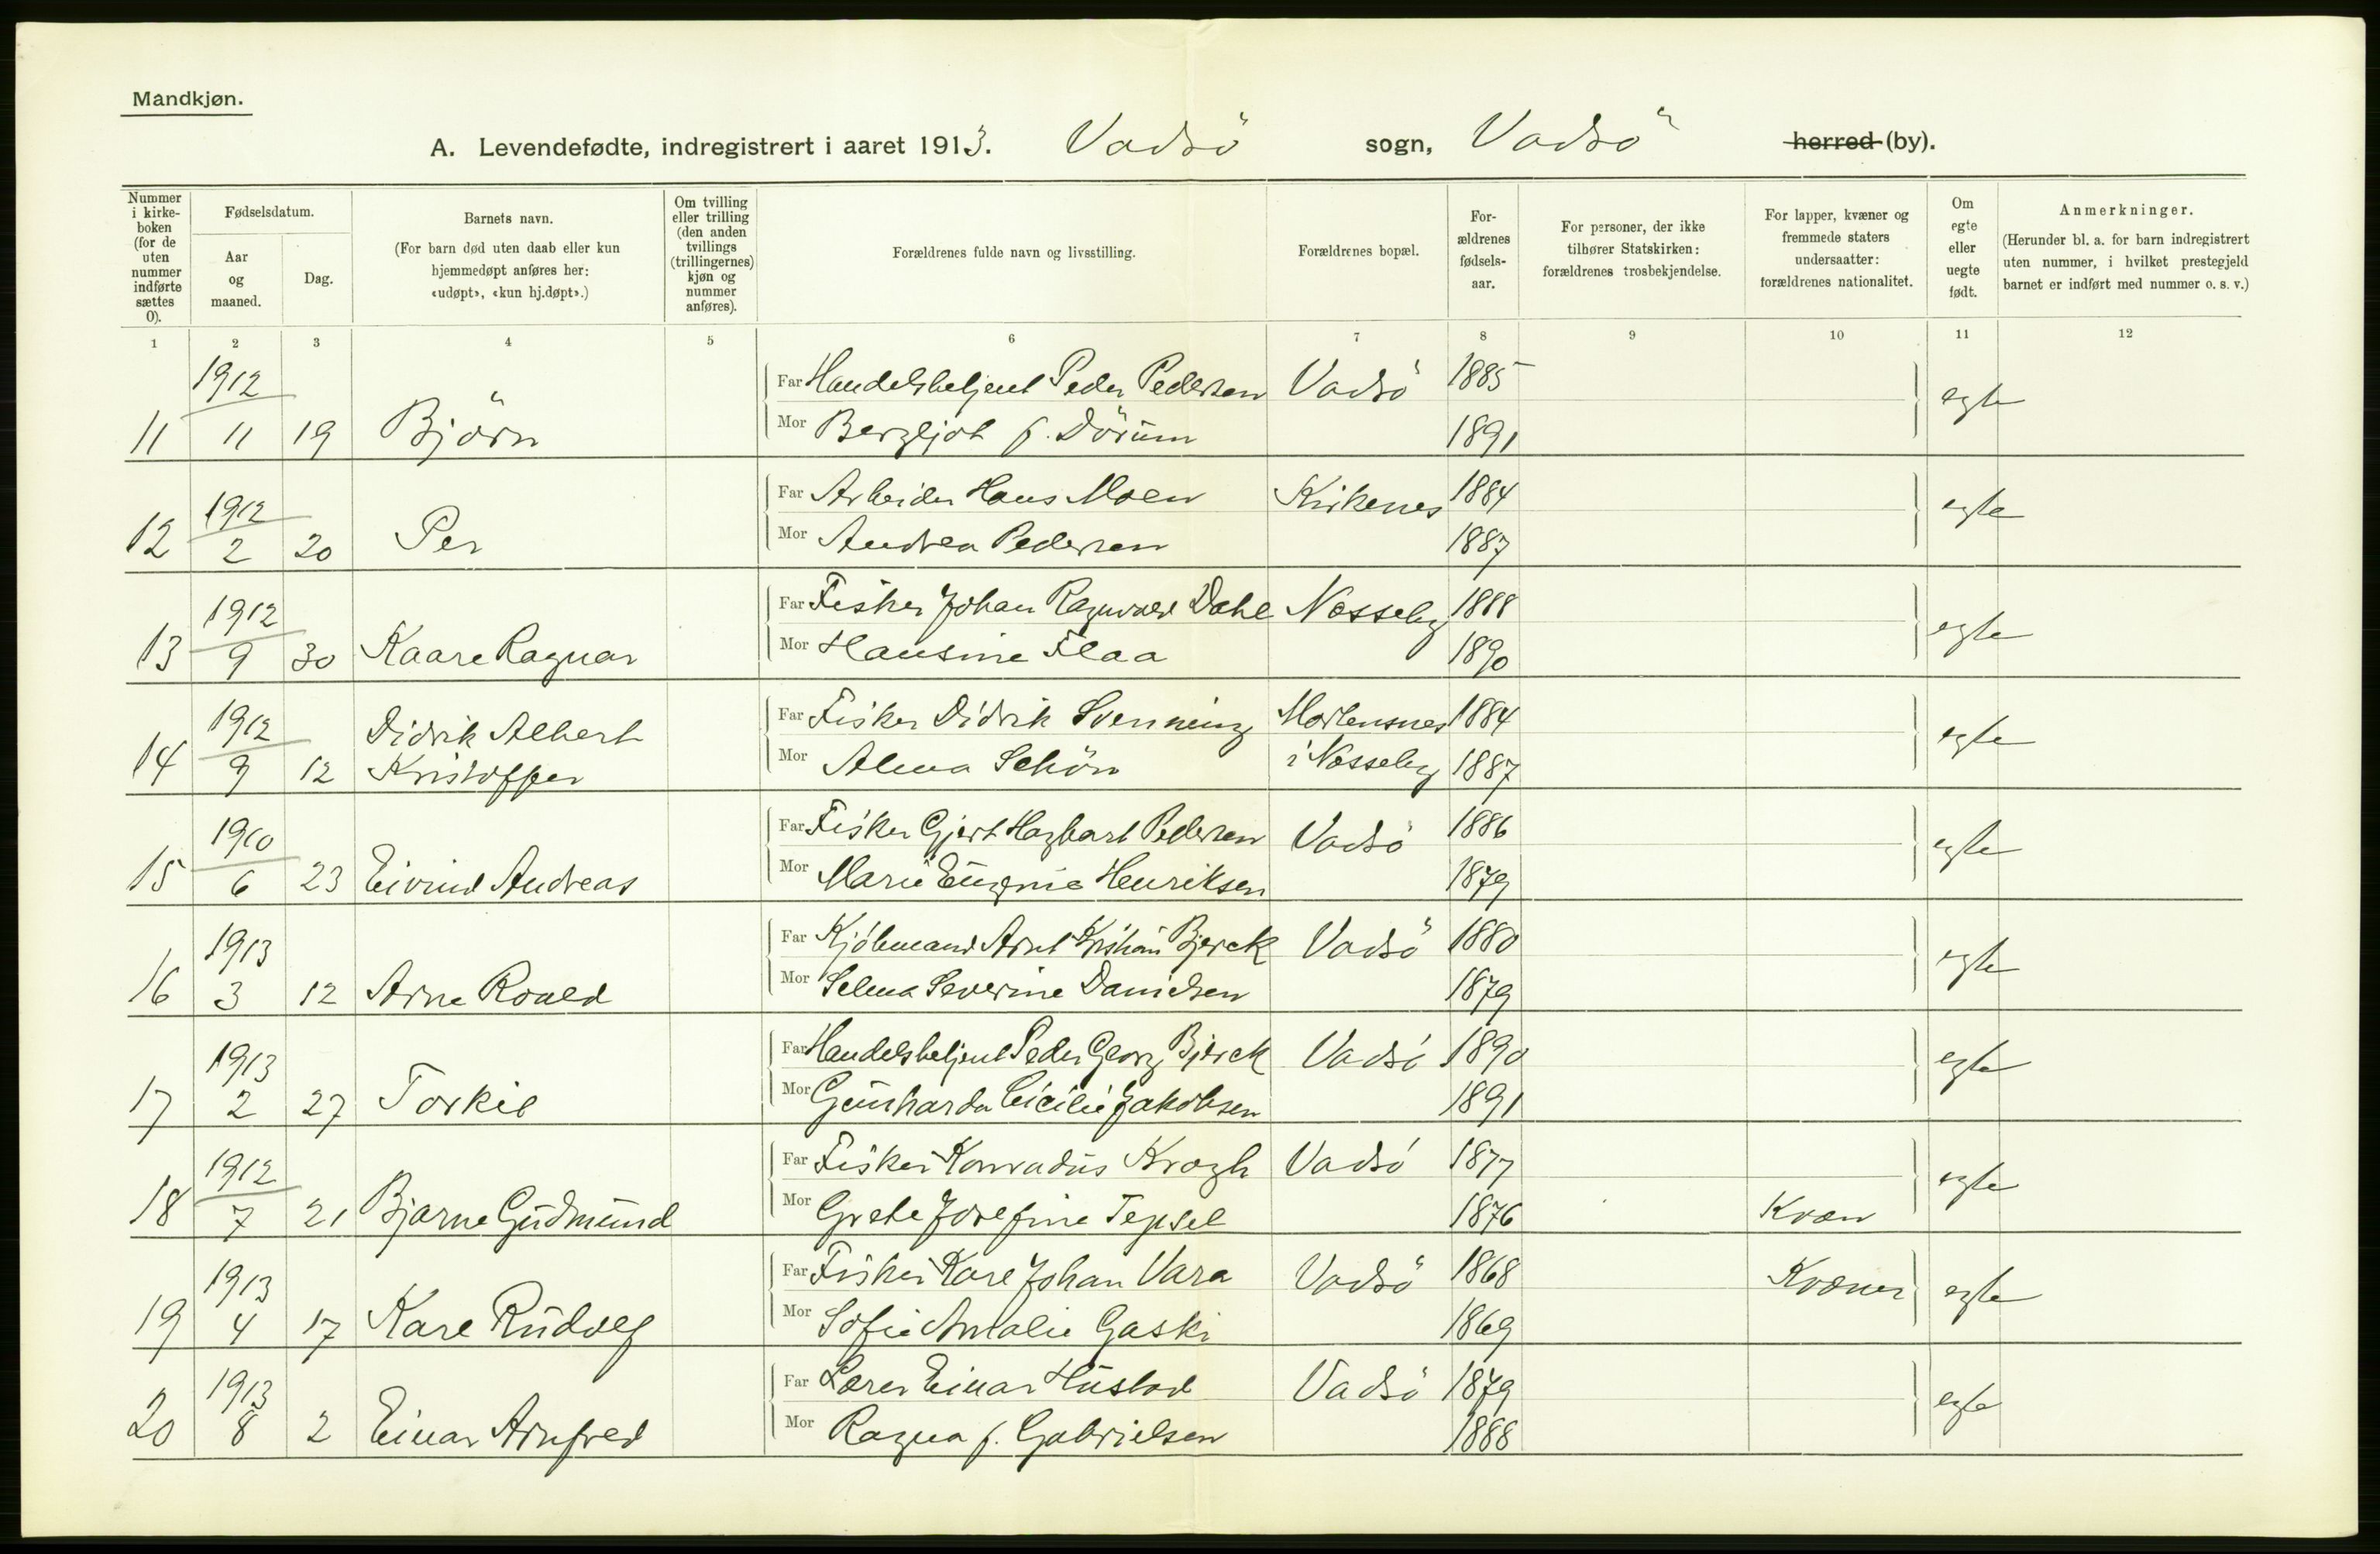 Mandkjøn.
A. Levendefødte, indregistrert i aaret 1913. Vadsö sogn, Vadsö herred (by).
Nummer i kirke-boken (for de uten nummer indførte sættes 0).
Fødselsdatum.
Aar og maaned.
Dag.
Barnets navn.
(For barn død uten daab eller kun hjemmedøpt anføres her: «udøpt», «kun hj.døpt».)
Om tvilling eller trilling (den anden tvillings (trillingernes) kjøn og nummer anføres).
Forældrenes fulde navn og livsstilling.
Forældrenes bopæl.
For-ældrenes fødsels-aar.
For personer, der ikke tilhører Statskirken: forældrenes trosbekjendelse.
For lapper, kvæner og fremmede staters undersaatter: forældrenes nationalitet.
Om egte eller uegte født.
Anmerkninger.
(Herunder bl. a. for barn indregistrert uten nummer, i hvilket prestegjeld barnet er indført med nummer o. s. v.)
1 2 3 4 5 6 7 8 9 10 11 12
1912 Far Handelsbetjent Peder Pedersen Vadsö 1885 egte
11 11 19 Björn Mor Bergljot f. Dörum 1891
1912 Far Arbeider Hans Moen Kirkenes 1884 egte
12 2 20 Per Mor Andrea Pedersen 1887
1912 Far Fisker Johan Ragnvald Dahl Næsseby 1888 egte
13 9 30 Kaare Ragnar Mor Hansine Flaa 1890
1912 Didrik Albert Far Fisker Didrik Svenning Mortensnes 1884 egte
14 9 12 Kristoffer Mor Alma Schön i Næsseby 1887
1910 Far Fisker Gjert Hagbart Pedersen Vadsö 1886 egte
15 6 23 Eivind Andreas Mor Marie Eugenie Henriksen 1879
1913 Far Kjöbmand Arnt Kristian Bjerck Vadsö 1880 egte
16 3 12 Arne Roald Mor Selma Severine Danielsen 1879
1913 Far Handelsbetjent Peder Georg Bjerck Vadsö 1890 egte
17 2 27 Torkil Mor Gunharda Cicilie Jakobsen 1891
1912 Far Fisker Konradus Krogh Vadsö 1877 egte
18 7 21 Bjarne Gudmund Mor Grete Josefine Tepsel 1876 Kvæn
1913 Far Fisker Karl Johan Vara Vadsö 1868 Kvæner egte
19 4 17 Karl Rudolf Mor Sofie Amalie Gaski 1869
1913 Far Lærer Einar Hustad Vadsö 1879 egte
20 8 2 Einar Arnfred Mor Ragna f. Gabrielsen 1888